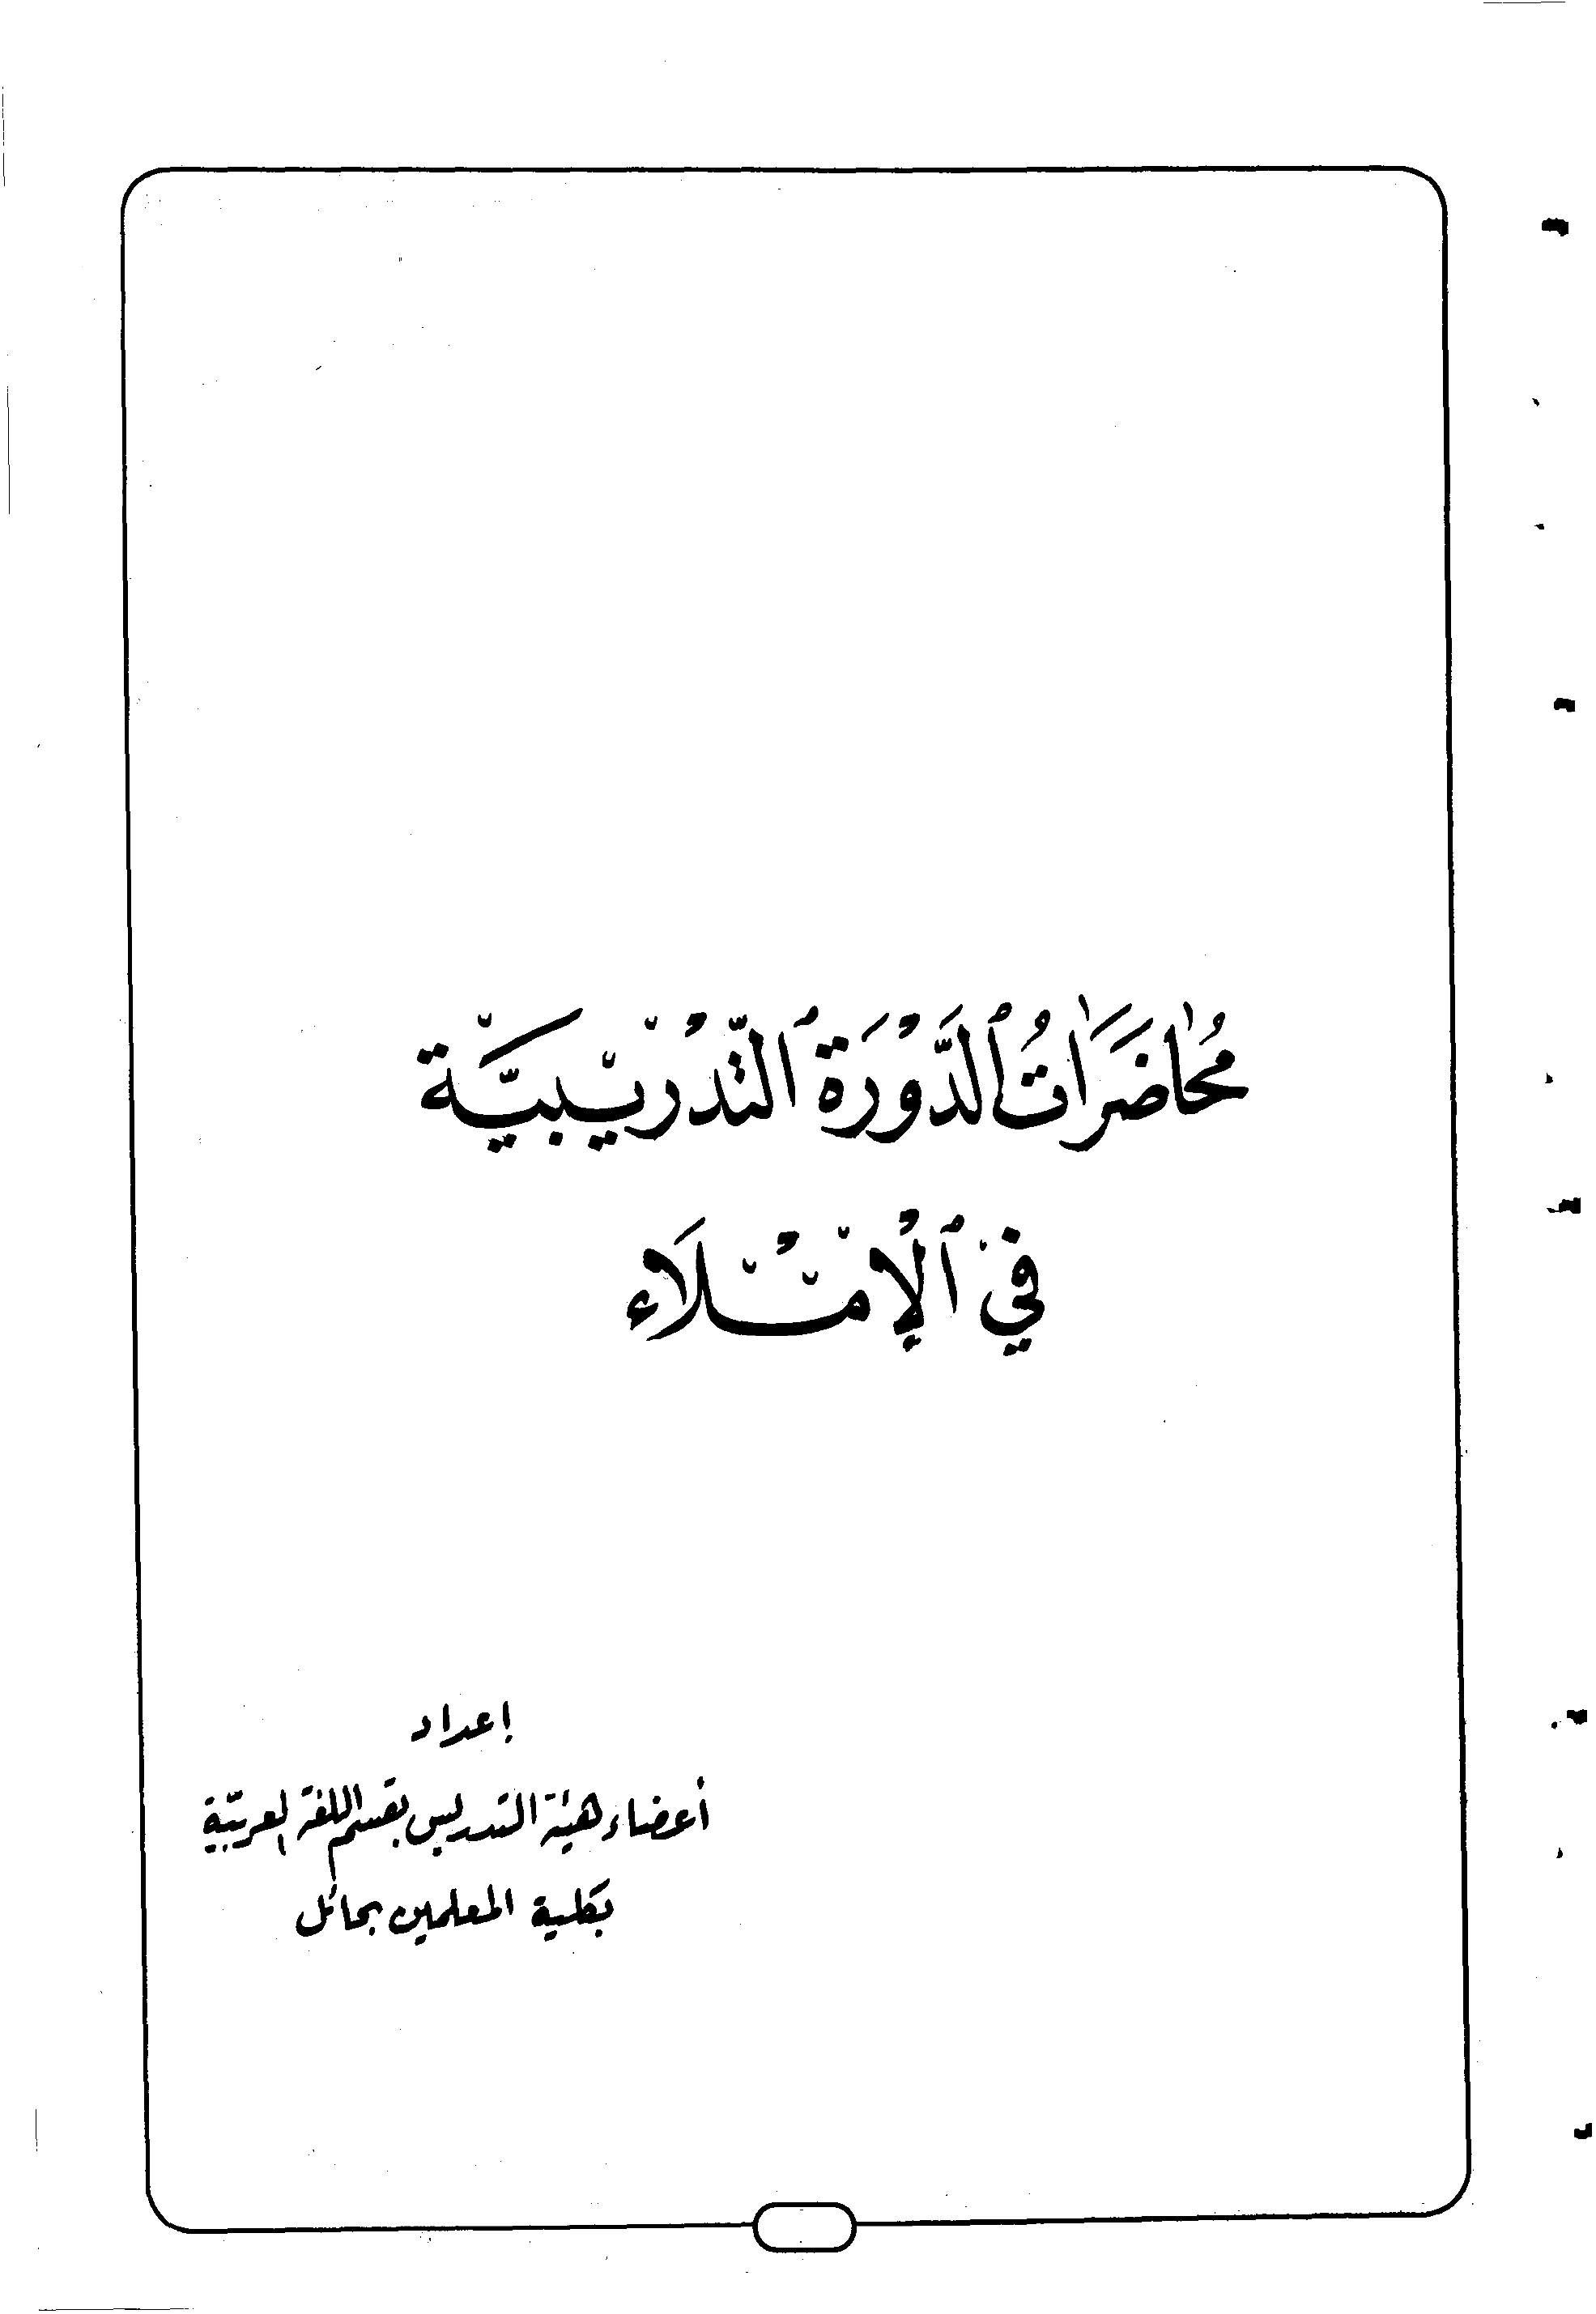 مُحَاضَرَاتُ ٱلدَّوْرَة ٱلتَّدْرِيبِيَّة
فِي ٱلْإِمْلَاء
إعداد
أعضاء هيئة التدريس بقسم اللغة العربيّة
بكلية المعلمين بحائل